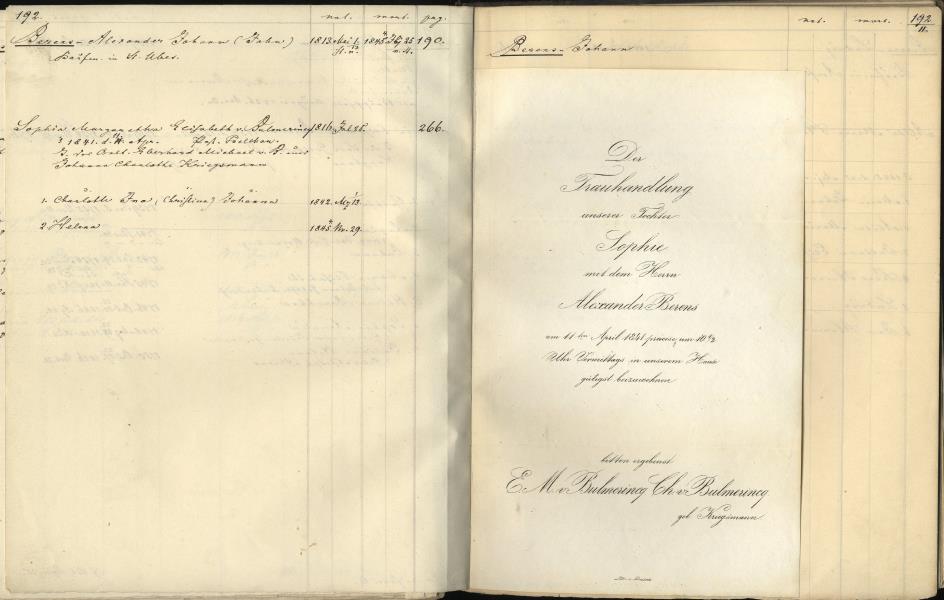 192.
nat. mort. pag.
Berens - Alexander Johann (John) 1813. Mai 1. 190.
Kaufm. in St. Ubes.
Sophia Margaretha Elisabeth v. Bulmerincq 1816. 266.
1841. d. 11. Apr.
Eberhard Michael v. B. und
Johanna Charlotte Kriegsmann
1. Charlotte Ina (Christina) Johanna 1842. 13.
2 Helena 1845. Nv. 29.
nat. mort. 192
II.
Berens - Johann
Der
Trauhandlung
unserer Tochter
Sophie
mit dem Herrn
Alexander Berens
am 11ten April 1841 precise um 10
Uhr Vormittags in unserem Hause
gütigst beizuwohnen
bitten ergebenst
E. M. v. Bulmerincq Ch. v. Bulmerincq
geb. Kriegsmann